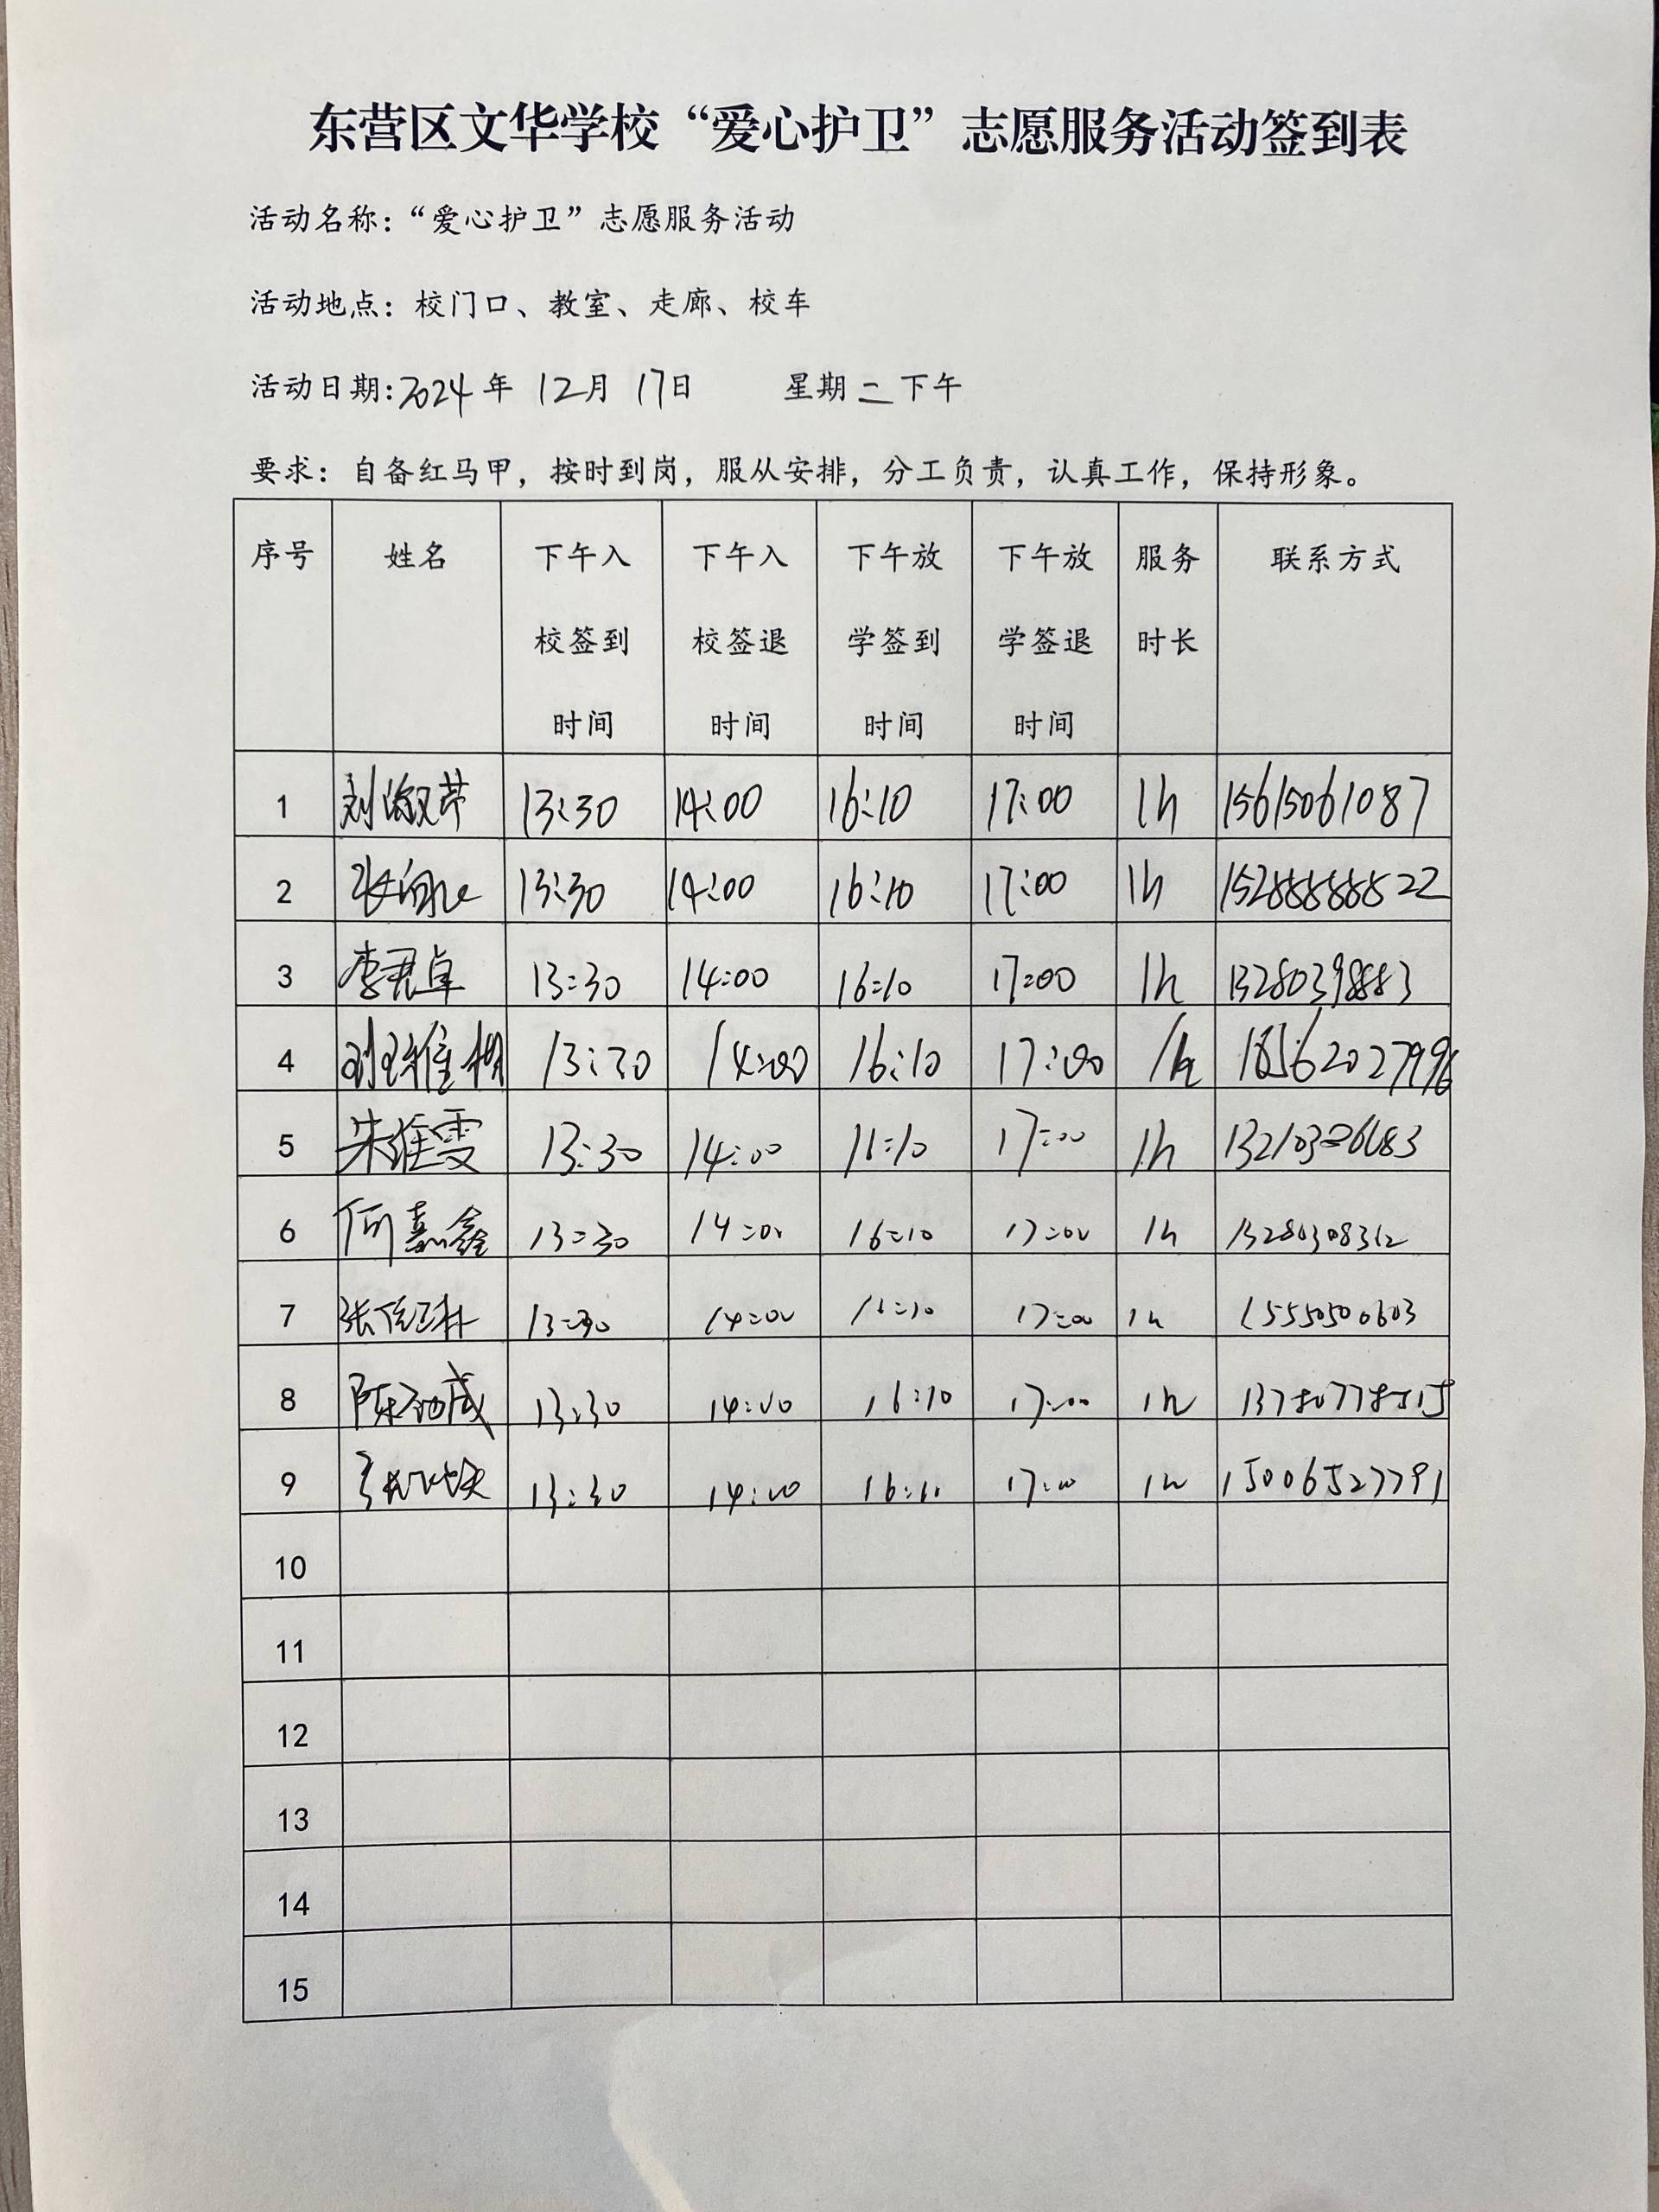 东营区文华学校“爱心护卫”志愿服务活动签到表
活动名称：“爱心护卫”志愿服务活动
活动地点：校门口、教室、走廊、校车
活动日期:2024年 12月 17日 星期二下午
要求：自备红马甲，按时到岗，服从安排，分工负责，认真工作，保持形象。
序号 姓名 下午入校签到时间 下午入校签退时间 下午放学签到时间 下午放学签退时间 服务时长 联系方式
1 刘淑芹 13:30 14:00 16:10 17:00 1h 15615061087
2 13:30 14:00 16:10 17:00 1h 15288888822
3 李君卓 13:30 14:00 16:10 17:00 1h 13280398883
4 13:30 14:00 16:10 17:00 1h 18562027996
5 朱维雯 13:30 14:00 16:10 17:00 1h
6 何嘉鑫 13:30 14:00 16:10 17:00 1h 13280308312
7 13:30 14:00 16:10 17:00 1h 15550500603
8 13:30 14:00 16:10 17:00 1h
9 13:30 14:00 16:10 17:00 1h 15006527791
10
11
12
13
14
15